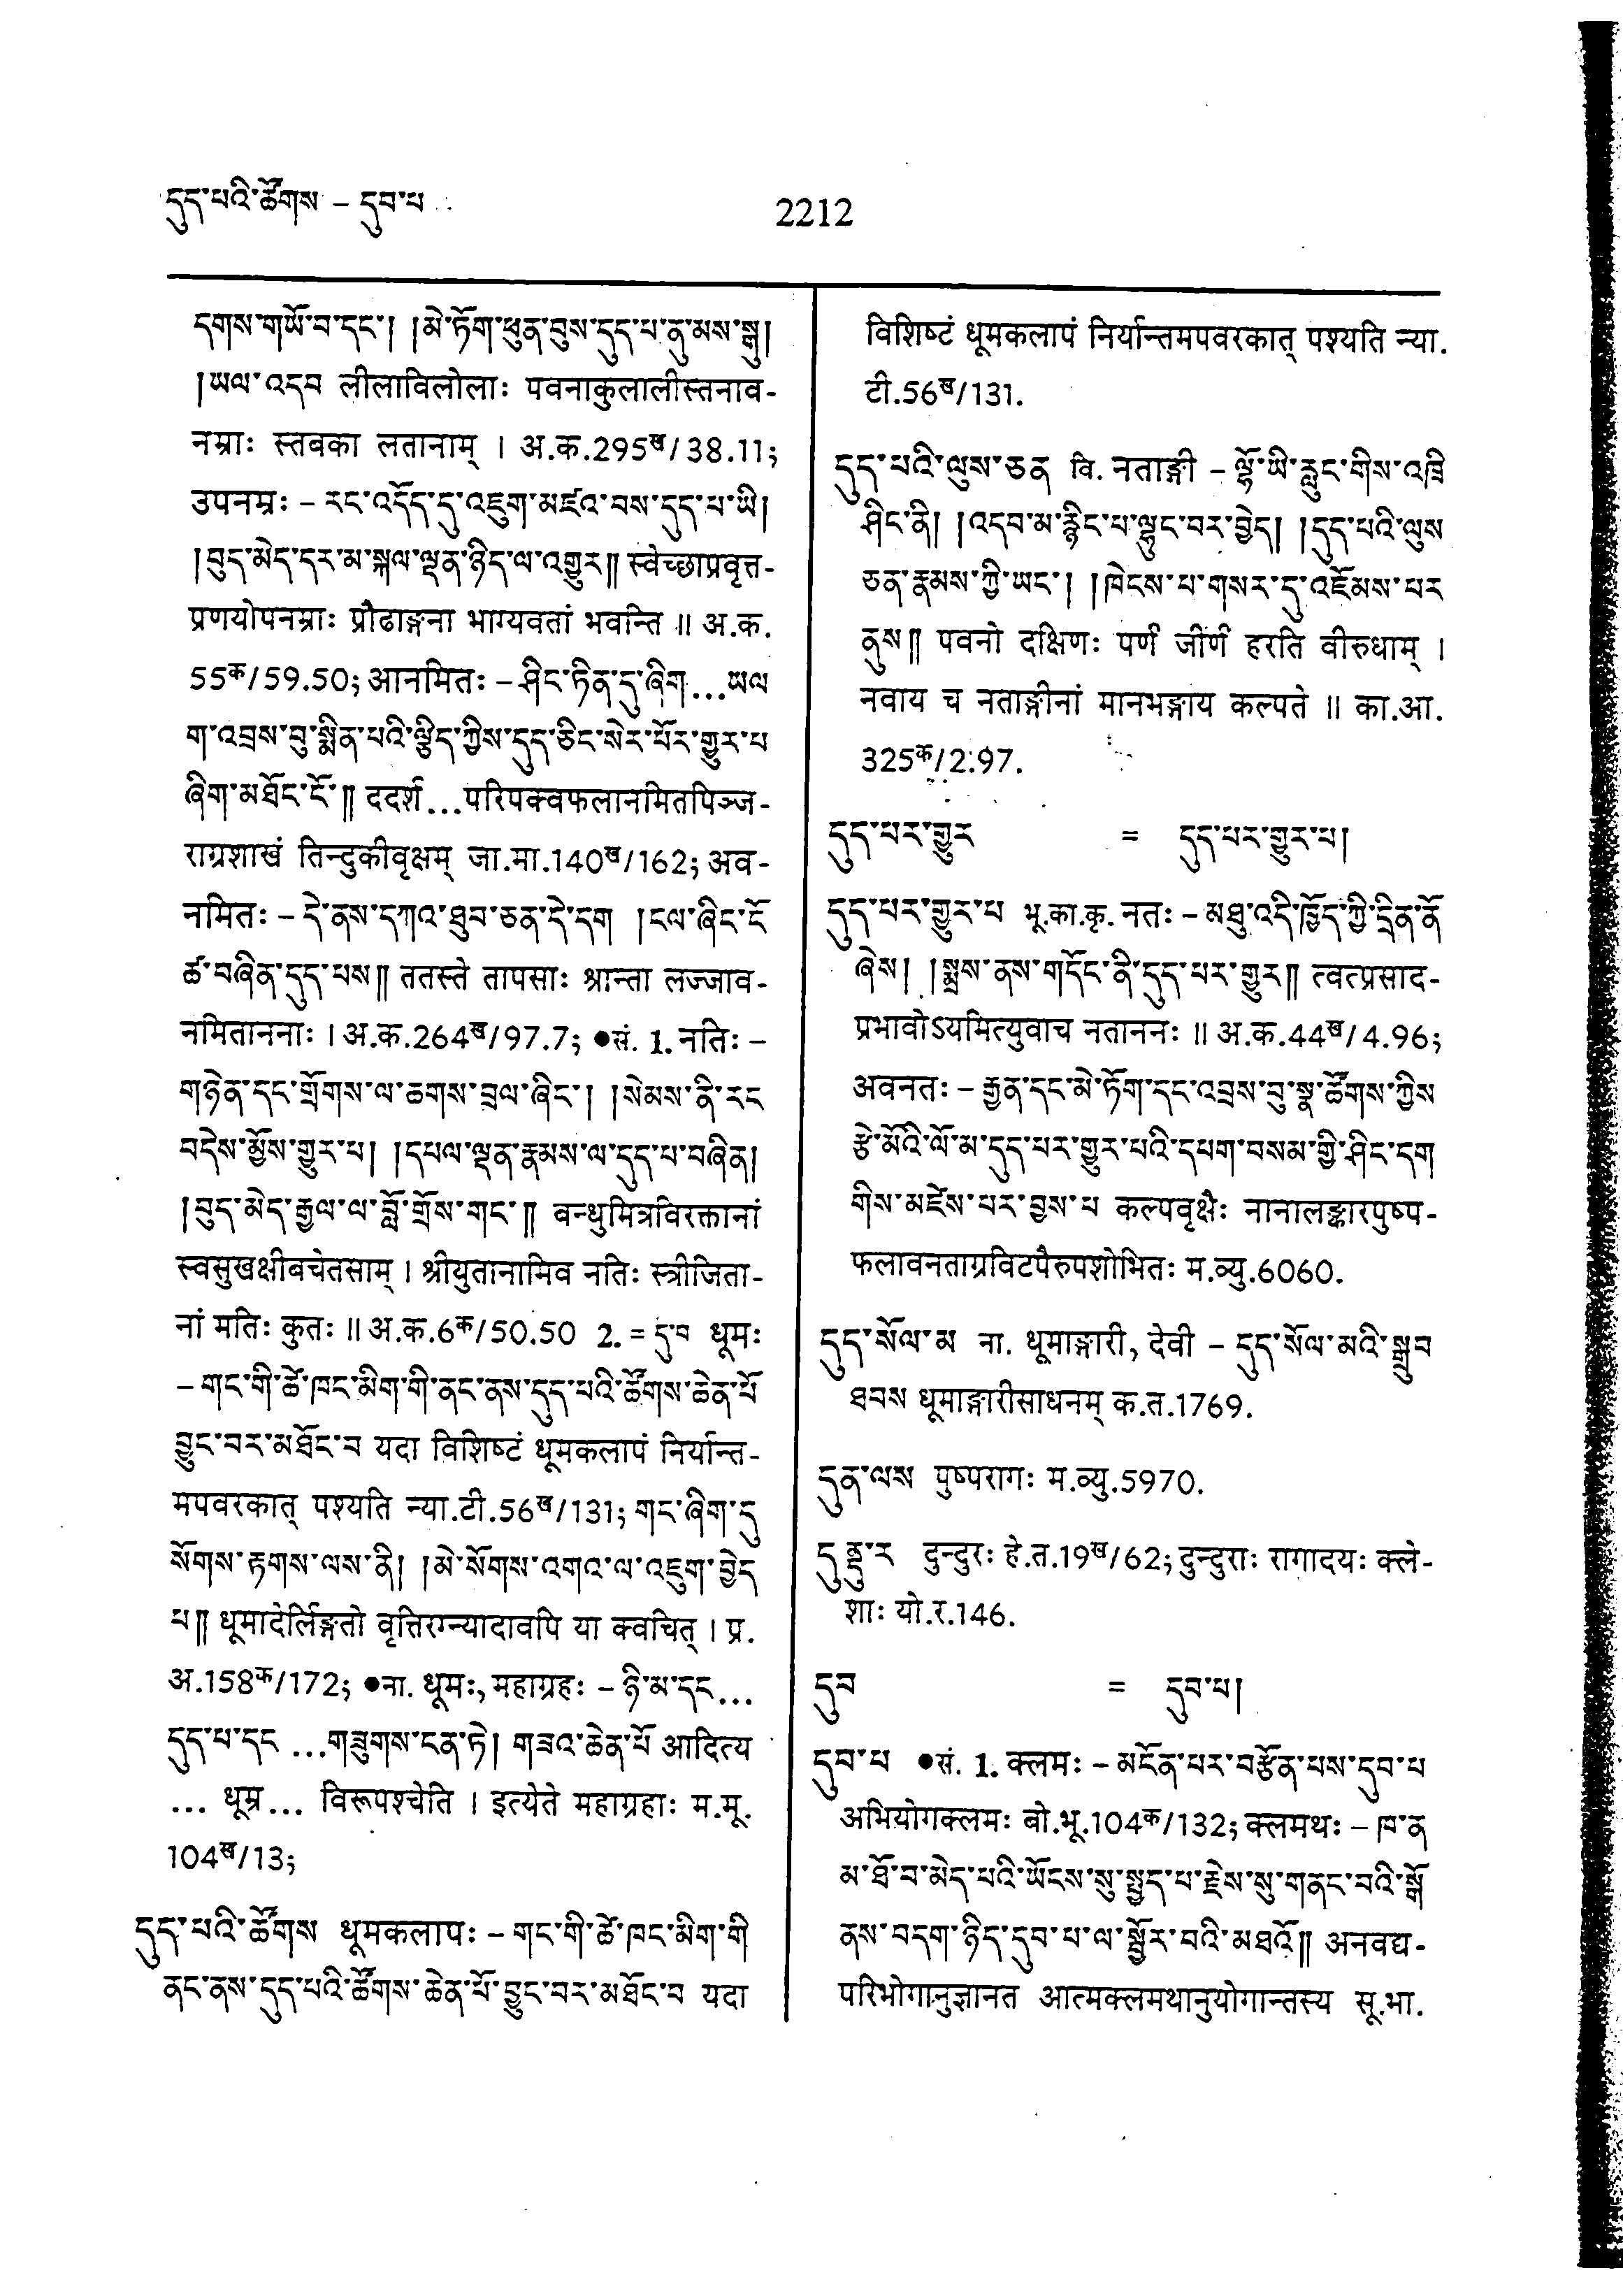 དུད་པའི་ཚོགས – དུབ་པ
2212
དགས་གཡོ་བ་དང་། །མེ་ཏོག་ཕུན་བུས་དུད་པ་ནུ་མས་སྒུ།
།ཡལ་འདབ लीलाविलोलाः पवनाकुलालीस्तनाव-
नम्राः स्तवका लतानाम् । अ.क.295ख/38.11;
उपनम्रः – རང་འདོད་དུ་འཇུག་མཛའ་བས་དུད་པ་ཡི།
།བུད་མེད་དར་མ་སྐལ་ལྡན་ཉིད་ལ་འགྱུར༎ स्वेच्छाप्रवृत्त-
प्रणयोपनम्राः प्रौढाङ्गना भाग्यवतां भवन्ति ॥ अ.क.
55क/59.50; आनमितः – ཤིང་ཏིན་དུ་ཞིག...ཡལ
ག་འབྲས་བུ་སྨིན་པའི་ལྕིད་ཀྱིས་དུད་ཅིང་སེར་པོར་གྱུར་པ
ཞིག་མཐོང་ངོ་༎ ददर्श...परिपक्वफलानमितपिञ्ज-
राग्रशाखं तिन्दुकीवृक्षम् जा.मा.140ख/162; अव-
नमितः – དེ་ནས་དཀའ་ཐུབ་ཅན་དེ་དག །ངལ་ཞིང་ངོ
ཚ་བཞིན་དུད་པས༎ ततस्ते तापसाः श्रान्ता लज्जाव-
नमिताननाः । अ.क.264ख/97.7; ●सं. 1. नतिः –
གཉེན་དང་གྲོགས་ལ་ཆགས་བྲལ་ཞིང་། །སེམས་ནི་རང
བདེས་མྱོས་གྱུར་པ། །དཔལ་ལྡན་རྣམས་ལ་དུད་པ་བཞིན།
།བུད་མེད་རྒྱལ་ལ་བློ་གྲོས་གང་༎ बन्धुमित्रविरक्तानां
स्वसुखक्षीवचेतसाम् । श्रीयुतानामिव नतिः स्त्रीजिता-
नां मतिः कुतः ॥ अ.क.6क/50.50 2. = དུ་བ धूमः
– གང་གི་ཚེ་ཁང་མིག་གི་ནང་ནས་དུད་པའི་ཚོགས་ཆེན་པོ
བྱུང་བར་མཐོང་བ यदा विशिष्टं धूमकलापं निर्यान्त-
मपवरकात् पश्यति न्या.टी.56ख/131; གང་ཞིག་དུ
སོགས་རྟགས་ལས་ནི། །མེ་སོགས་འགའ་ལ་འཇུག་བྱེད
པ༎ धूमादेर्लिङ्गतो वृत्तिरग्न्यादावपि या क्वचित् । प्र.
अ.158क/172; ●ना. धूमः, महाग्रहः – ཉི་མ་དང...
དུད་པ་དང ...གཟུགས་ངན་ཏེ། གཟའ་ཆེན་པོ आदित्य
... धूम्र... विरूपश्चेति । इत्येते महाग्रहाः म.मू.
104ख/13;
དུད་པའི་ཚོགས धूमकलापः – གང་གི་ཚེ་ཁང་མིག་གི
ནང་ནས་དུད་པའི་ཚོགས་ཆེན་པོ་བྱུང་བར་མཐོང་བ यदा
विशिष्टं धूमकलापं निर्यान्तमपवरकात् पश्यति न्या.
टी.56ख/131.
དུད་པའི་ལུས་ཅན वि. नताङ्गी – ལྷོ་ཡི་རླུང་གིས་འཁྲི
ཤིང་ནི། །འདབ་མ་རྙིང་པ་ལྷུང་བར་བྱེད། །དུད་པའི་ལུས
ཅན་རྣམས་ཀྱི་ཡང་། །ཁེངས་པ་གསར་དུ་འཇོམས་པར
ནུས༎ पवनो दक्षिणः पर्णं जीर्णं हरति वीरुधाम् ।
नवाय च नताङ्गीनां मानभङ्गाय कल्पते ॥ का.आ.
325क/2.97.
དུད་པར་གྱུར = དུད་པར་གྱུར་པ།
དུད་པར་གྱུར་པ भू.का.कृ. नतः – མཐུ་འདི་ཁྱོད་ཀྱི་དྲིན་ནོ
ཞེས། །སྨྲས་ནས་གདོང་ནི་དུད་པར་གྱུར༎ त्वत्प्रसाद-
प्रभावोऽयमित्युवाच नताननः ॥ अ.क.44ख/4.96;
अवनतः – རྒྱན་དང་མེ་ཏོག་དང་འབྲས་བུ་སྣ་ཚོགས་ཀྱིས
རྩེ་མོའི་ལོ་མ་དུད་པར་གྱུར་པའི་དཔག་བསམ་གྱི་ཤིང་དག
གིས་མཛེས་པར་བྱས་པ कल्पवृक्षैः नानालङ्कारपुष्प-
फलावनताग्रविटपैरुपशोभितः म.व्यु.6060.
དུད་སོལ་མ ना. धूमाङ्गारी, देवी – དུད་སོལ་མའི་སྒྲུབ
ཐབས धूमाङ्गारीसाधनम् क.त.1769.
དུན་ལས पुष्परागः म.व्यु.5970.
དུ་ནྡུ་ར दुन्दुरः हे.त.19ख/62; दुन्दुराः रागादयः क्ले-
शाः यो.र.146.
དུབ = དུབ་པ།
དུབ་པ ●सं. 1. क्लमः – མངོན་པར་བརྩོན་པས་དུབ་པ
अभियोगक्लमः बो.भू.104क/132; क्लमथः – ཁ་ན
མ་ཐོ་བ་མེད་པའི་ཡོངས་སུ་སྤྱད་པ་རྗེས་སུ་གནང་བའི་སྒོ
ནས་བདག་ཉིད་དུབ་པ་ལ་སྦྱོར་བའི་མཐའོ༎ अनवद्य-
परिभोगानुज्ञानत आत्मक्लमथानुयोगान्तस्य सू.भा.